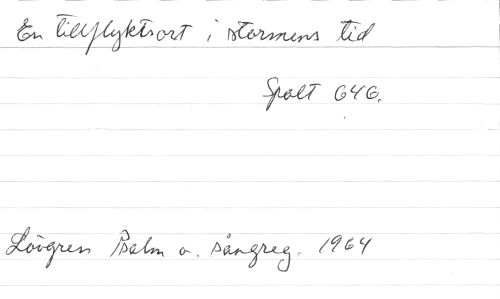 En tillflyktsort i stormens tid
Spalt 646.
Lövgren Psalm o. sångreg. 1964